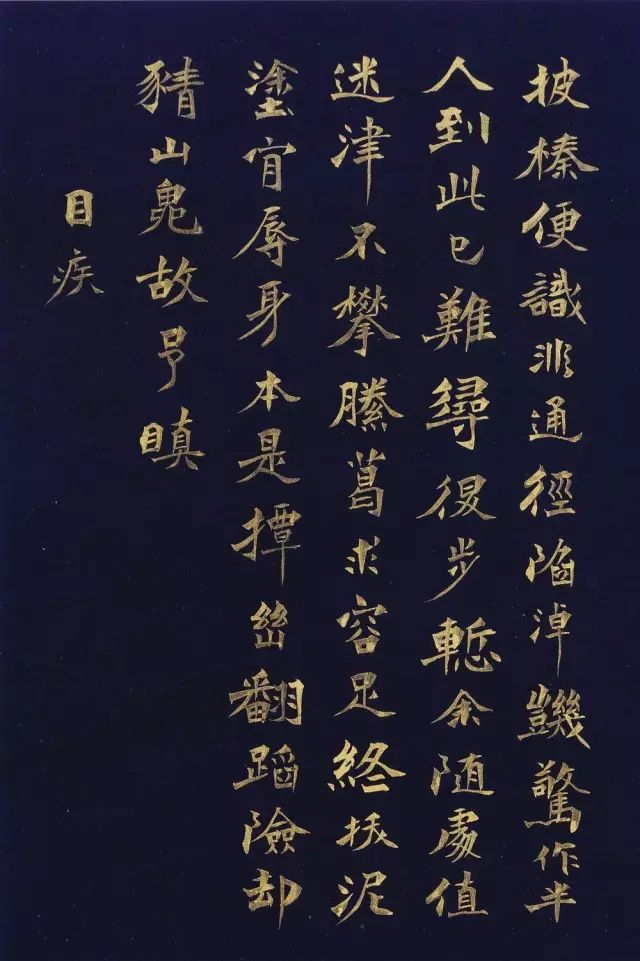 披榛便識非通徑陷淖驚作半
人到此已難尋復步慙余随處值
迷津不攀縢葛求容足終拔泥
塗宜辱身本是撢幽翻蹈險却
猜山鬼故予瞋
目疾